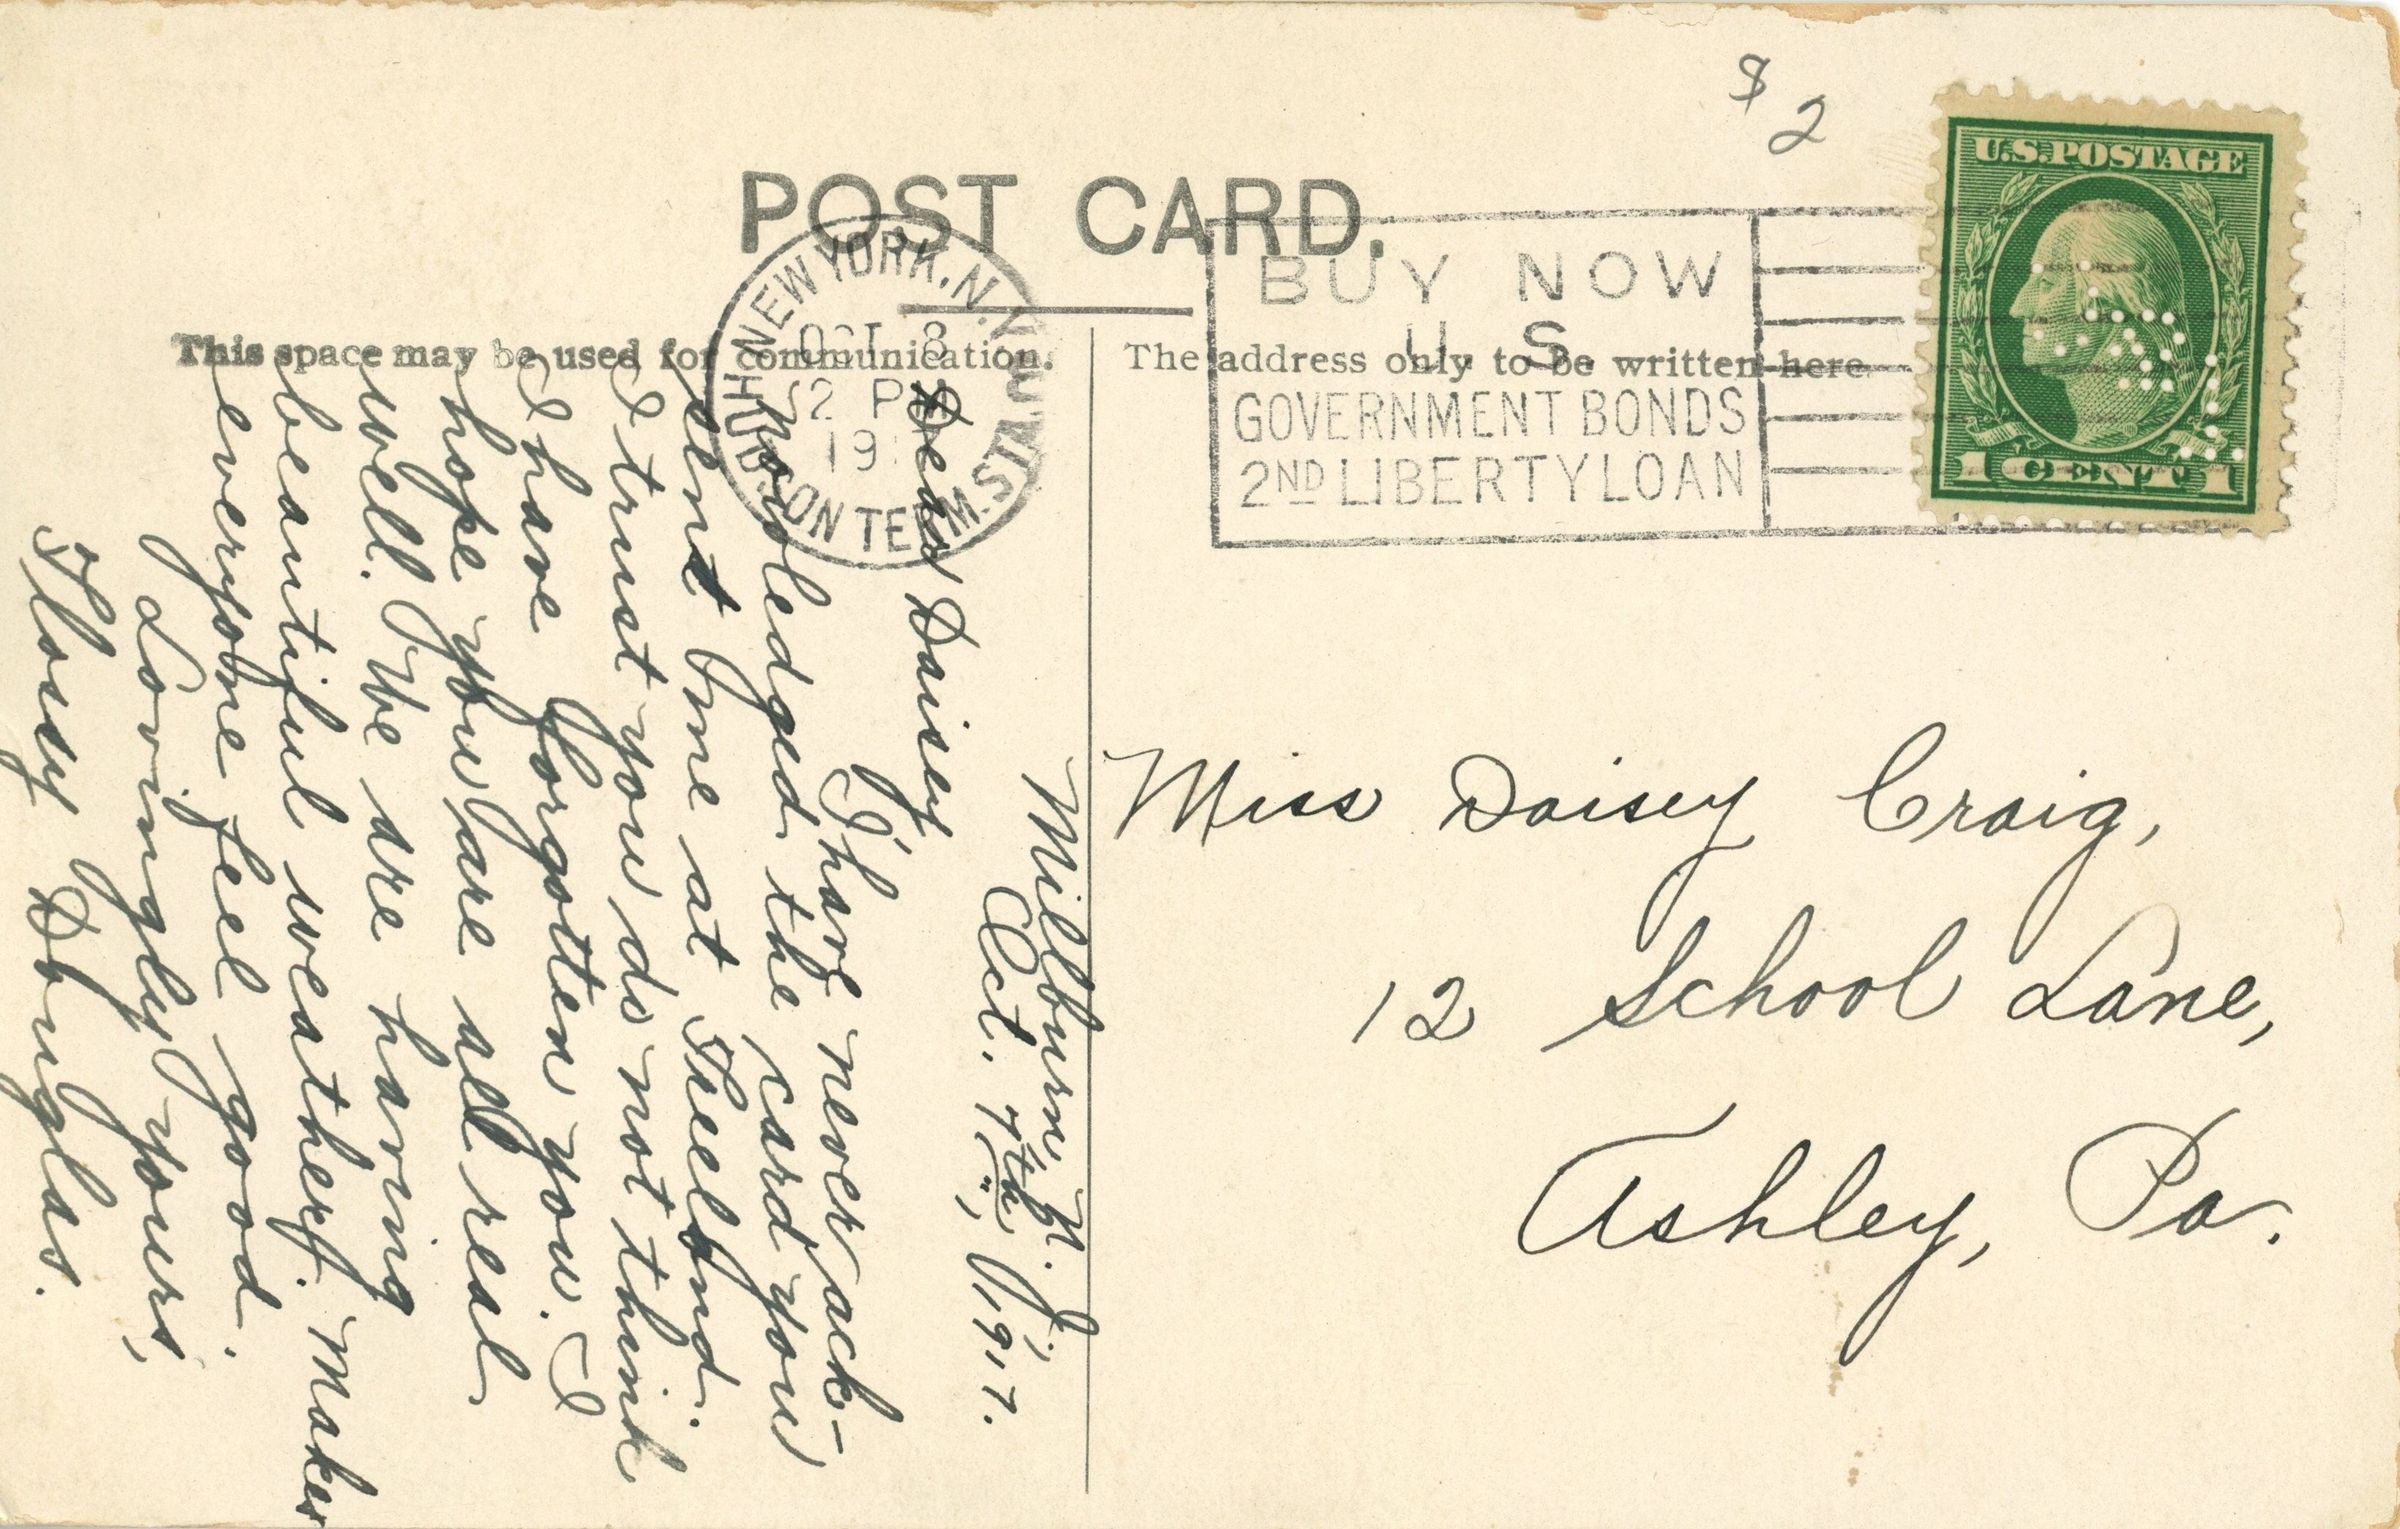 $2
U.S. POSTAGE
1 CENT 1
POST CARD.
NEW YORK, N.Y.
HUDSON TERM. STA.
OCT 8
2 PM
19
BUY NOW
U. S.
GOVERNMENT BONDS
2ND LIBERTY LOAN
This space may be used for communication.
The address only to be written here.
Millburn, N. J.,
Oct. 7th, 1917.
Dear Daisey
I have never ack-
nowledged the card you
sent me at Freeland.
I trust you do not think
I have forgotten you. I
hope you are all real
well. We are having
beautiful weather. Makes
everyone feel good.
Lovingly yours,
Flossy Douglas.
Miss Daisey Craig,
12 School Lane,
Ashley, Pa.